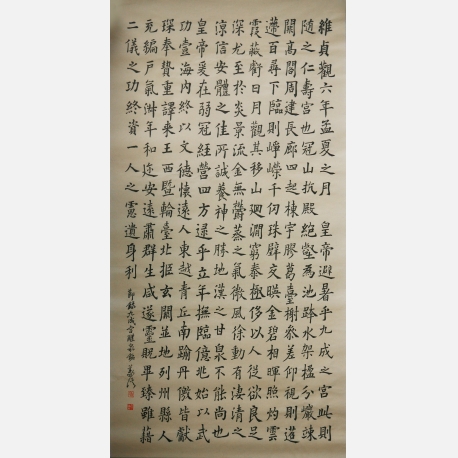 維貞觀六年孟夏之月 皇帝避暑乎九成之宮此則
隨之仁壽宮也冠山抗殿絕壑為池跨水架楹分巖竦
闕高閣周建長廊四起棟宇膠葛臺榭參差仰視則迢
遰百尋下臨則崢嶸千仞珠璧交暎金碧相暉照灼雲
霞蔽虧日月觀其移山迴澗窮泰極侈以人從欲良足
深尤至於炎景流金無鬱蒸之氣微風徐動有淒清之
涼信安體之佳所誠養神之勝地漢之甘泉不能尚也
皇帝爰在弱冠經營四方逮乎立年撫臨億兆始以武
功壹海內終以文德懷遠人東越青丘南踰丹儌皆獻
琛奉贄重譯來王西暨輪臺北拒玄闕並地列州縣人
充編戶氣淑年和迩安遠肅群生咸遂靈貺畢臻雖藉
二儀之功終資一人之慮遺身利
節錄九成宮醴泉銘